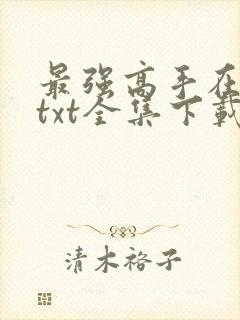 最强高手在
txt全集下载
清木裕子